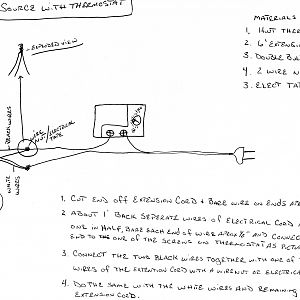 SOURCE WITH THERMOSTAT
MATERIALS
1. HUNT THER
2. 6' EXTENSION
3. DOUBLE BA
4. 2 WIRE N
5. ELECT TA
EXPANDED VIEW
BLACK WIRES
WIRE
NUT/ELECTRICAL
TAPE
WHITE
WIRES
1. CUT END OFF EXTENSION CORD & BARE WIRE ON ENDS
2. ABOUT 1' BACK SEPERATE WIRES OF ELECTRICAL CORD
ONE IN HALF, BARE EACH END OF WIRE ABOUT ½" AND CONNEC
END TO THE ONE OF THE SCREWS ON THERMOSTAT AS
3. CONNECT THE TWO BLACK WIRES TOGETHER WITH ONE OF
WIRES OF THE EXTENTION CORD WITH A WIRENUT OR ELECTRICA
4. DO THE SAME WITH THE WHITE WIRES AND REMAINING
EXTENSION CORD.